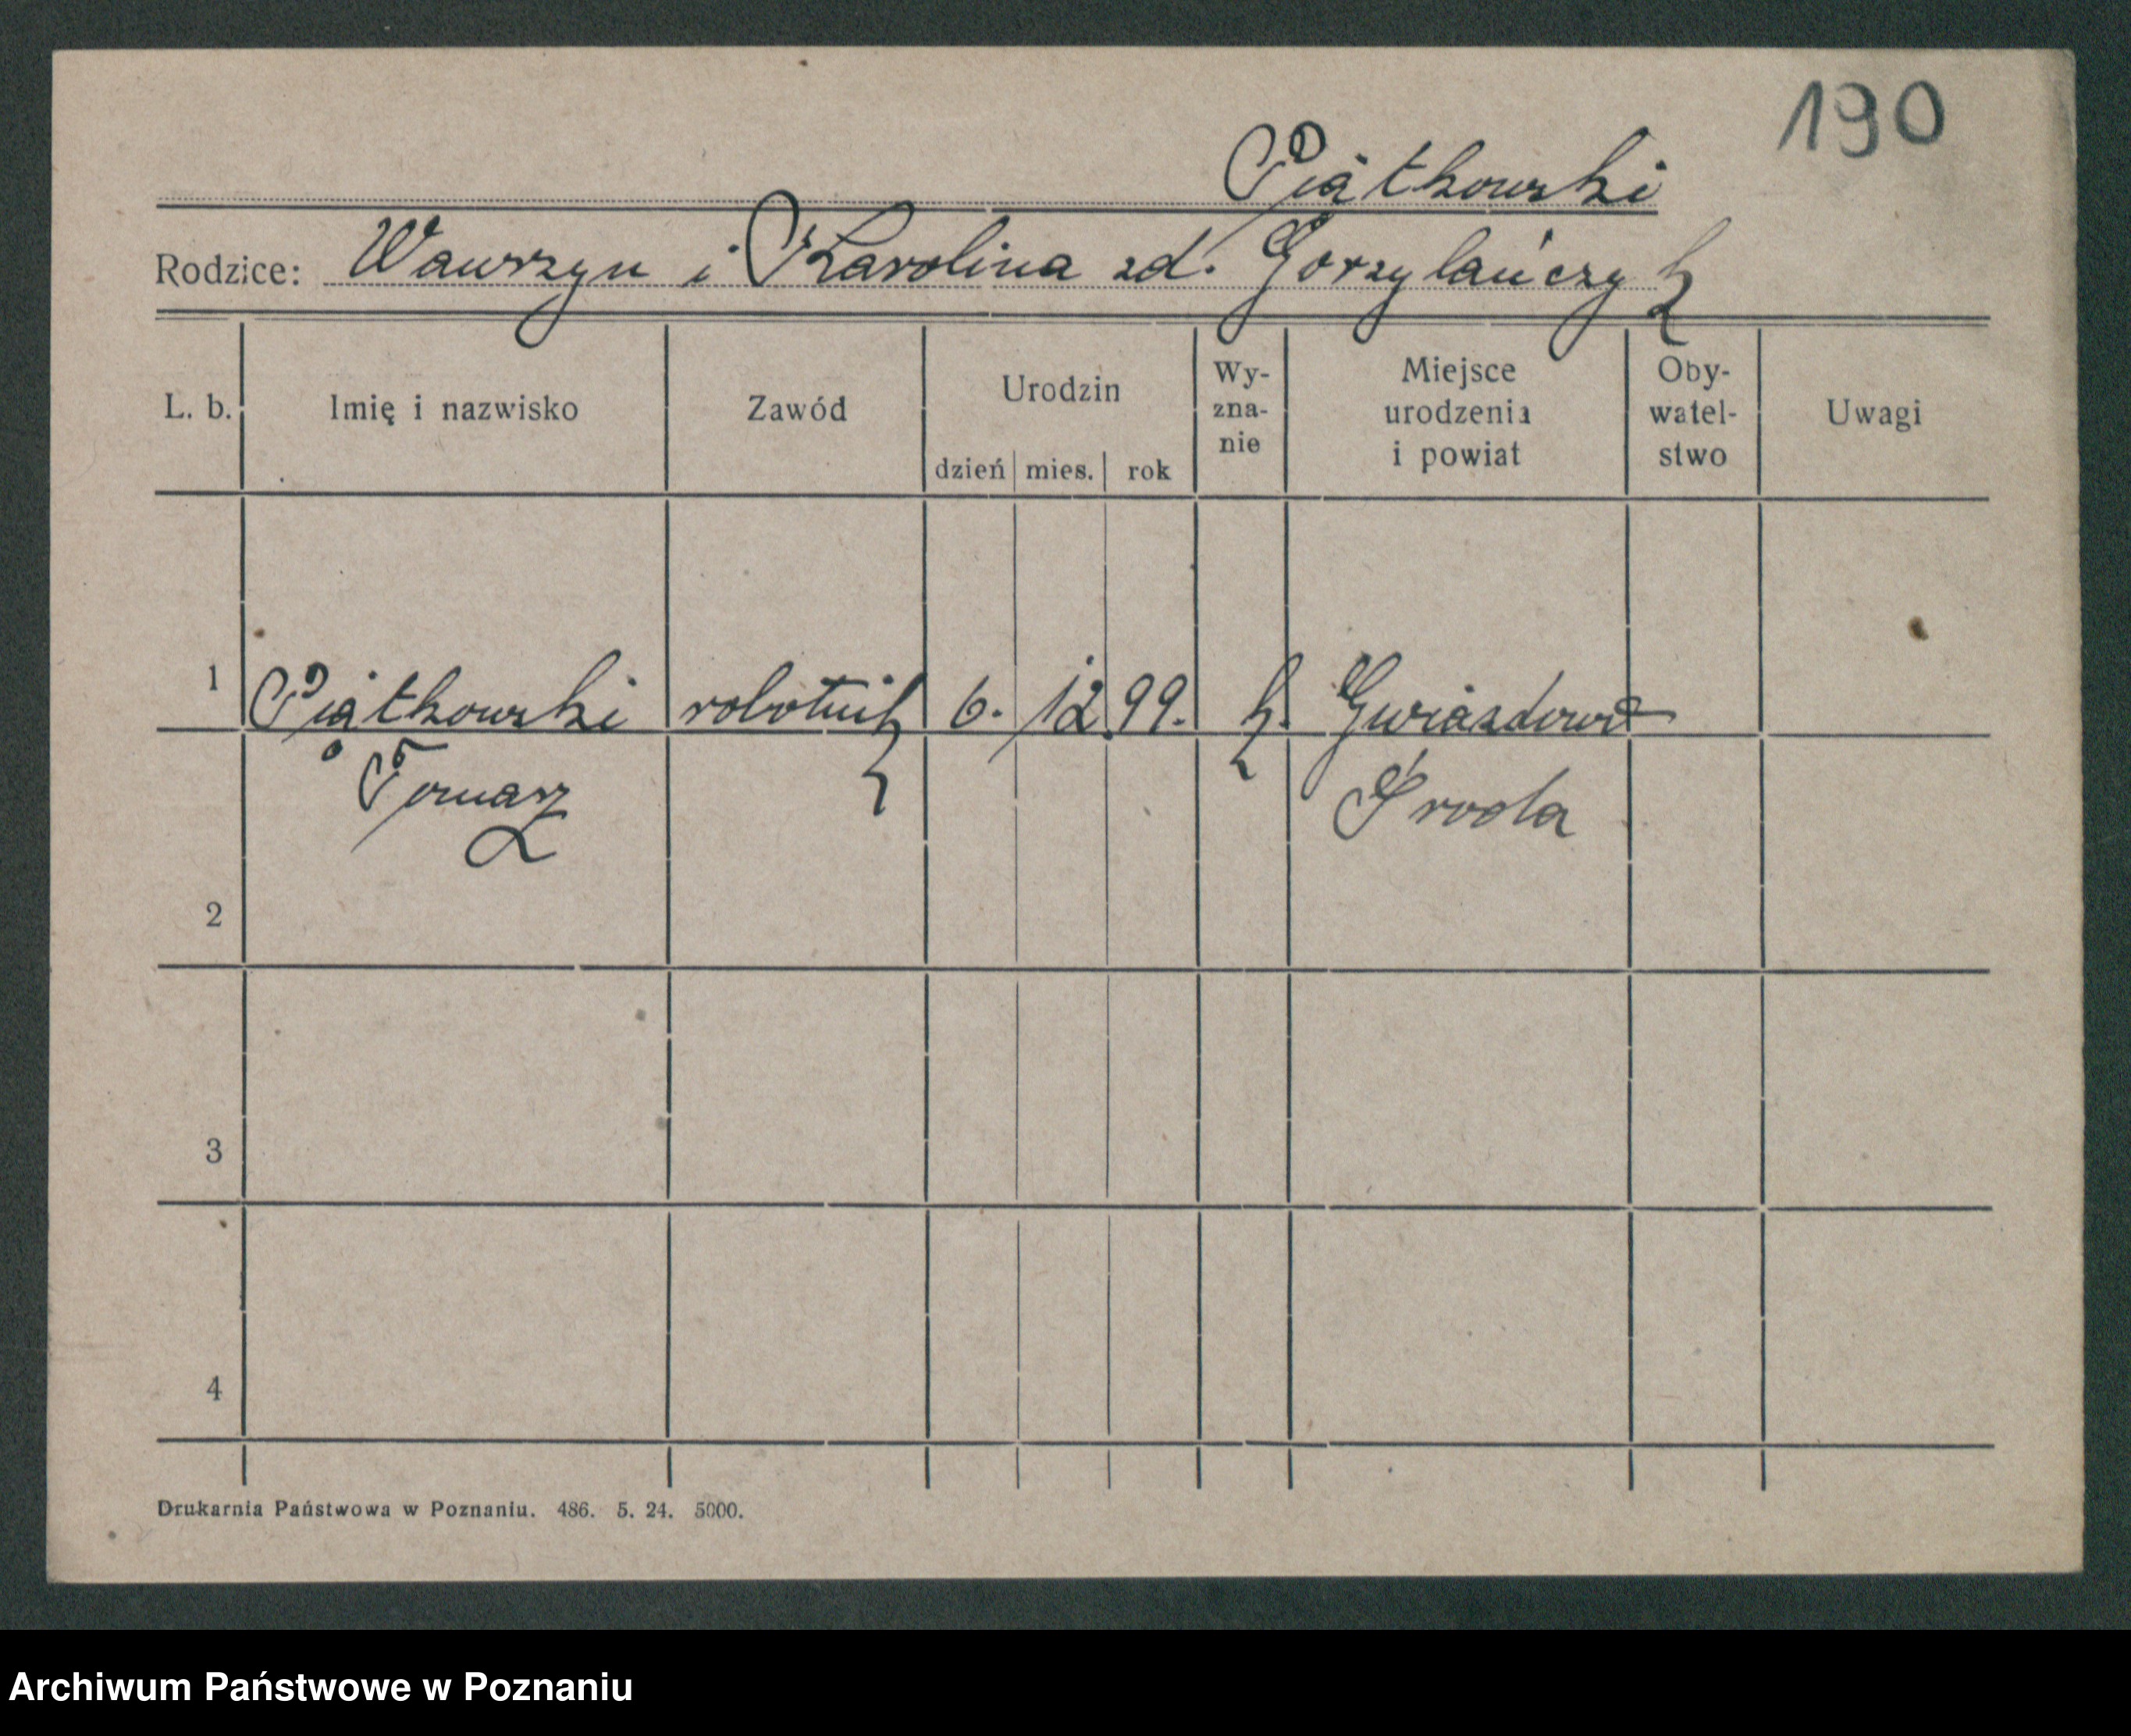 190
Piątkowski
Rodzice: Wawrzyn i Karolina zd. Gorzylańczyk
L. b. Imię i nazwisko Zawód Urodzin dzień mies. rok Wy-zna-nie Miejsce urodzenia i powiat Oby-watel-stwo Uwagi
1 Piątkowski robotnik 6. 12. 99. k. Gwiazdowo
Tomasz Środa
2
3
4
Drukarnia Państwowa w Poznaniu. 486. 5. 24. 5000.
Archiwum Państwowe w Poznaniu